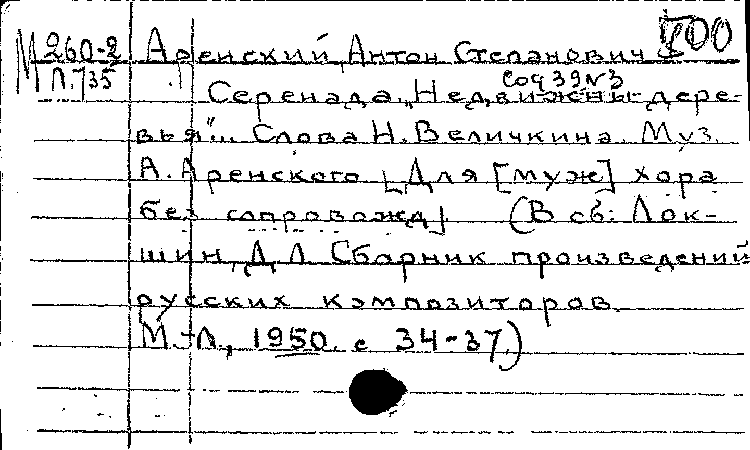 М 260-2 Аренский, Антон Степанович
Л.735 Соч 39 №3
Серенада „Недвижены дере-
вья"... Слова Н. Величкина. Муз.
А. Аренского [Для [муж] хора
без сопровожд] (В сб: Лок-
шин, Д. Л. Сборник произведений
русских композиторов.
М-Л, 1950. с 34-37.)